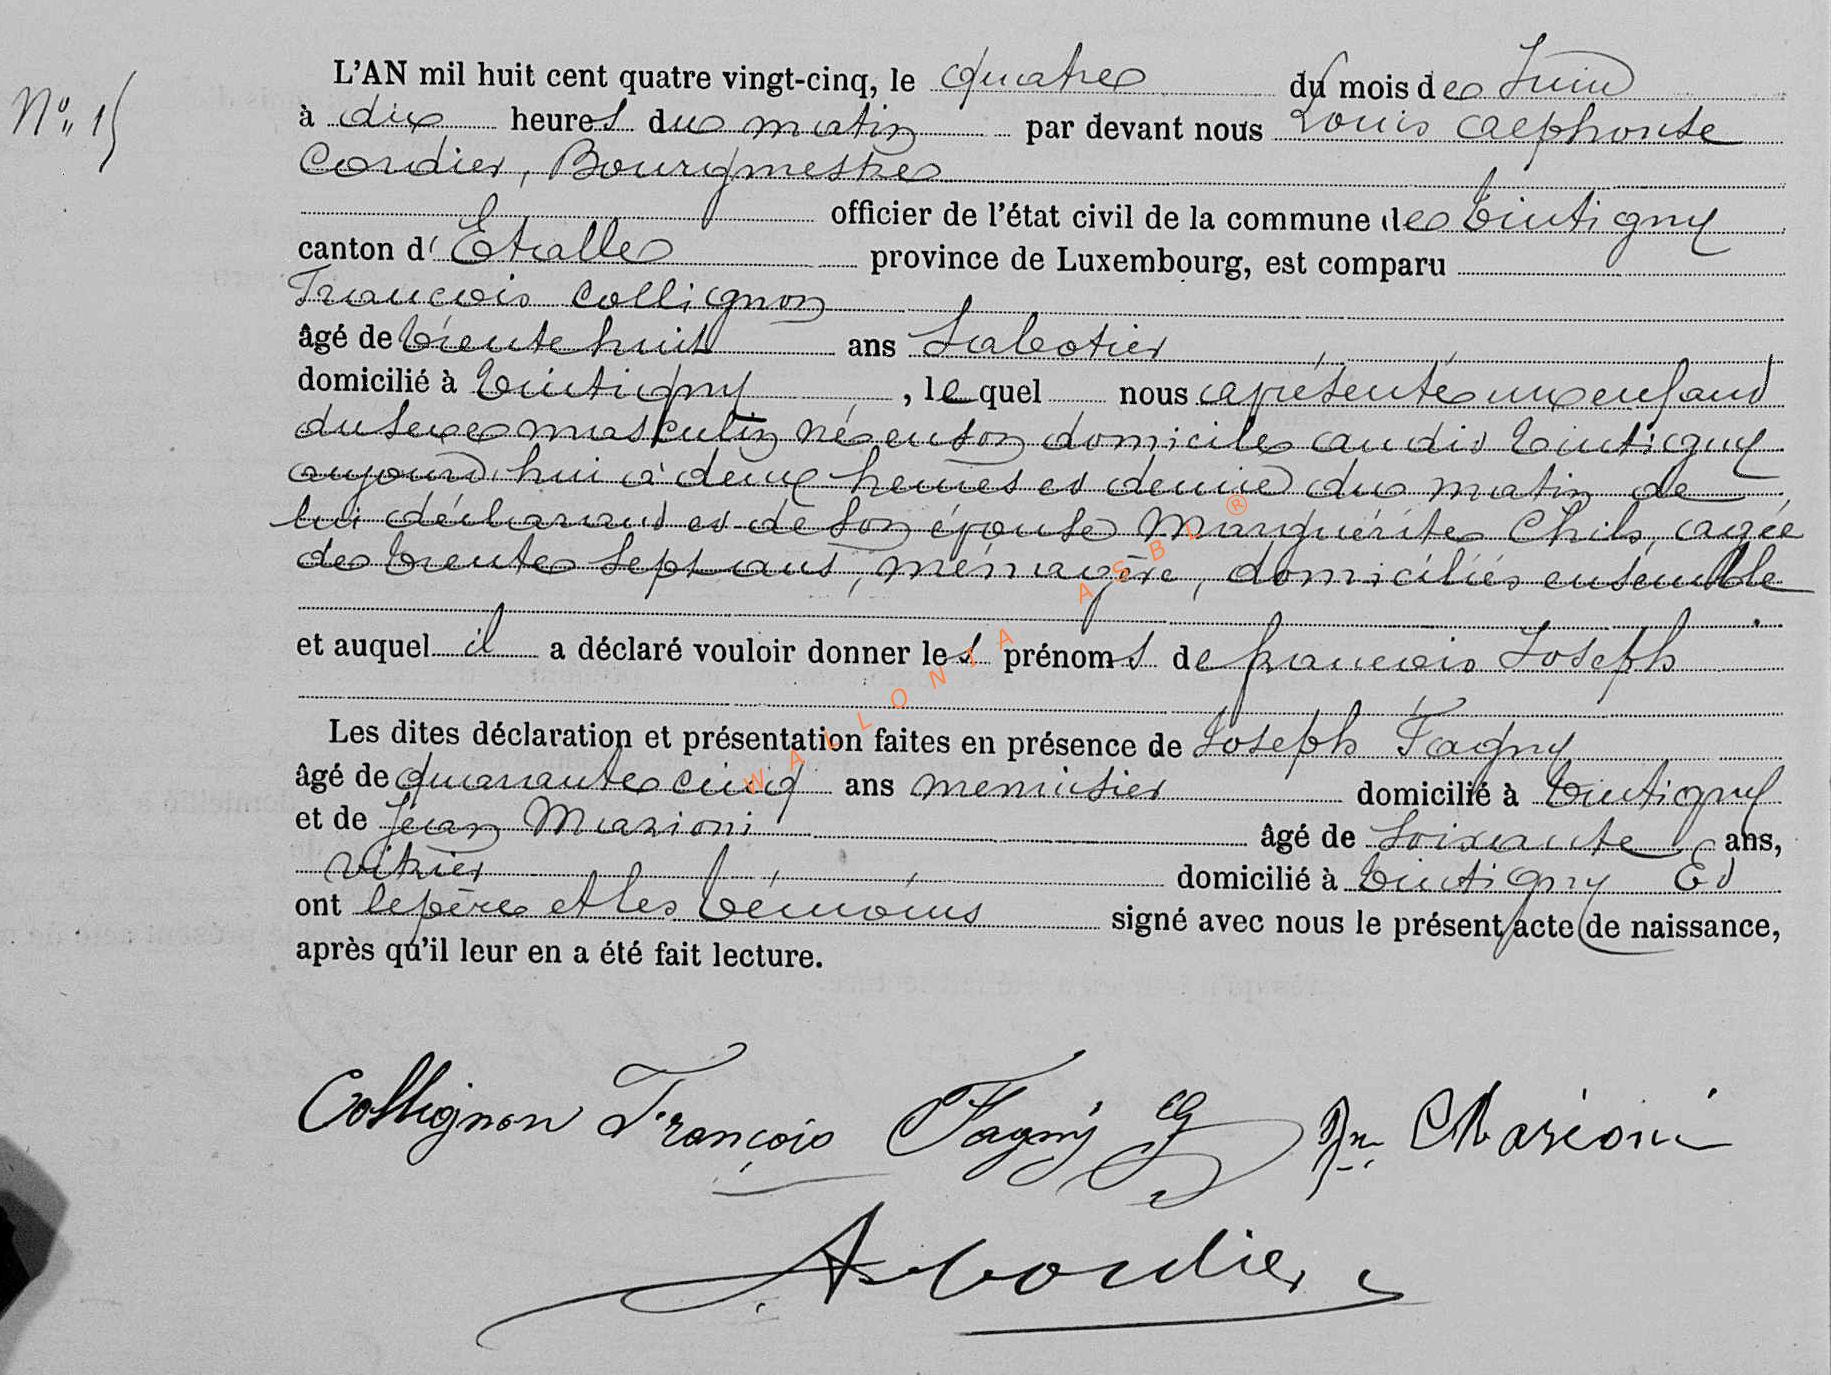 N° 15
L'AN mil huit cent quatre vingt-cinq, le quatre du mois de Juin
à dix heures du matin par devant nous Louis Alphonse
Cordier, Bourgmestre
officier de l'état civil de la commune de Tintigny
canton d'Etalle province de Luxembourg, est comparu
François Collignon
âgé de trente huit ans Sabotier
domicilié à Tintigny, lequel nous a présenté un enfant
du sexe masculin né en son domicile au dit Tintigny
aujourd'hui à deux heures et demie du matin de
lui déclarant et de son épouse Marguérite Thils, agée
de trente sept ans, ménagère, domiciliés ensemble
et auquel il a déclaré vouloir donner les prénoms de françois Joseph
Les dites déclaration et présentation faites en présence de Joseph Fagny
âgé de quarante cinq ans menuisier domicilié à Tintigny
et de Jean Marioni âgé de soixante ans,
vitrier domicilié à Tintigny Et
ont le père et les témoins signé avec nous le présent acte de naissance,
après qu'il leur en a été fait lecture.
Collignon François Fagny Jn Marioni
A Cordier
WALLONIA ASBL ®